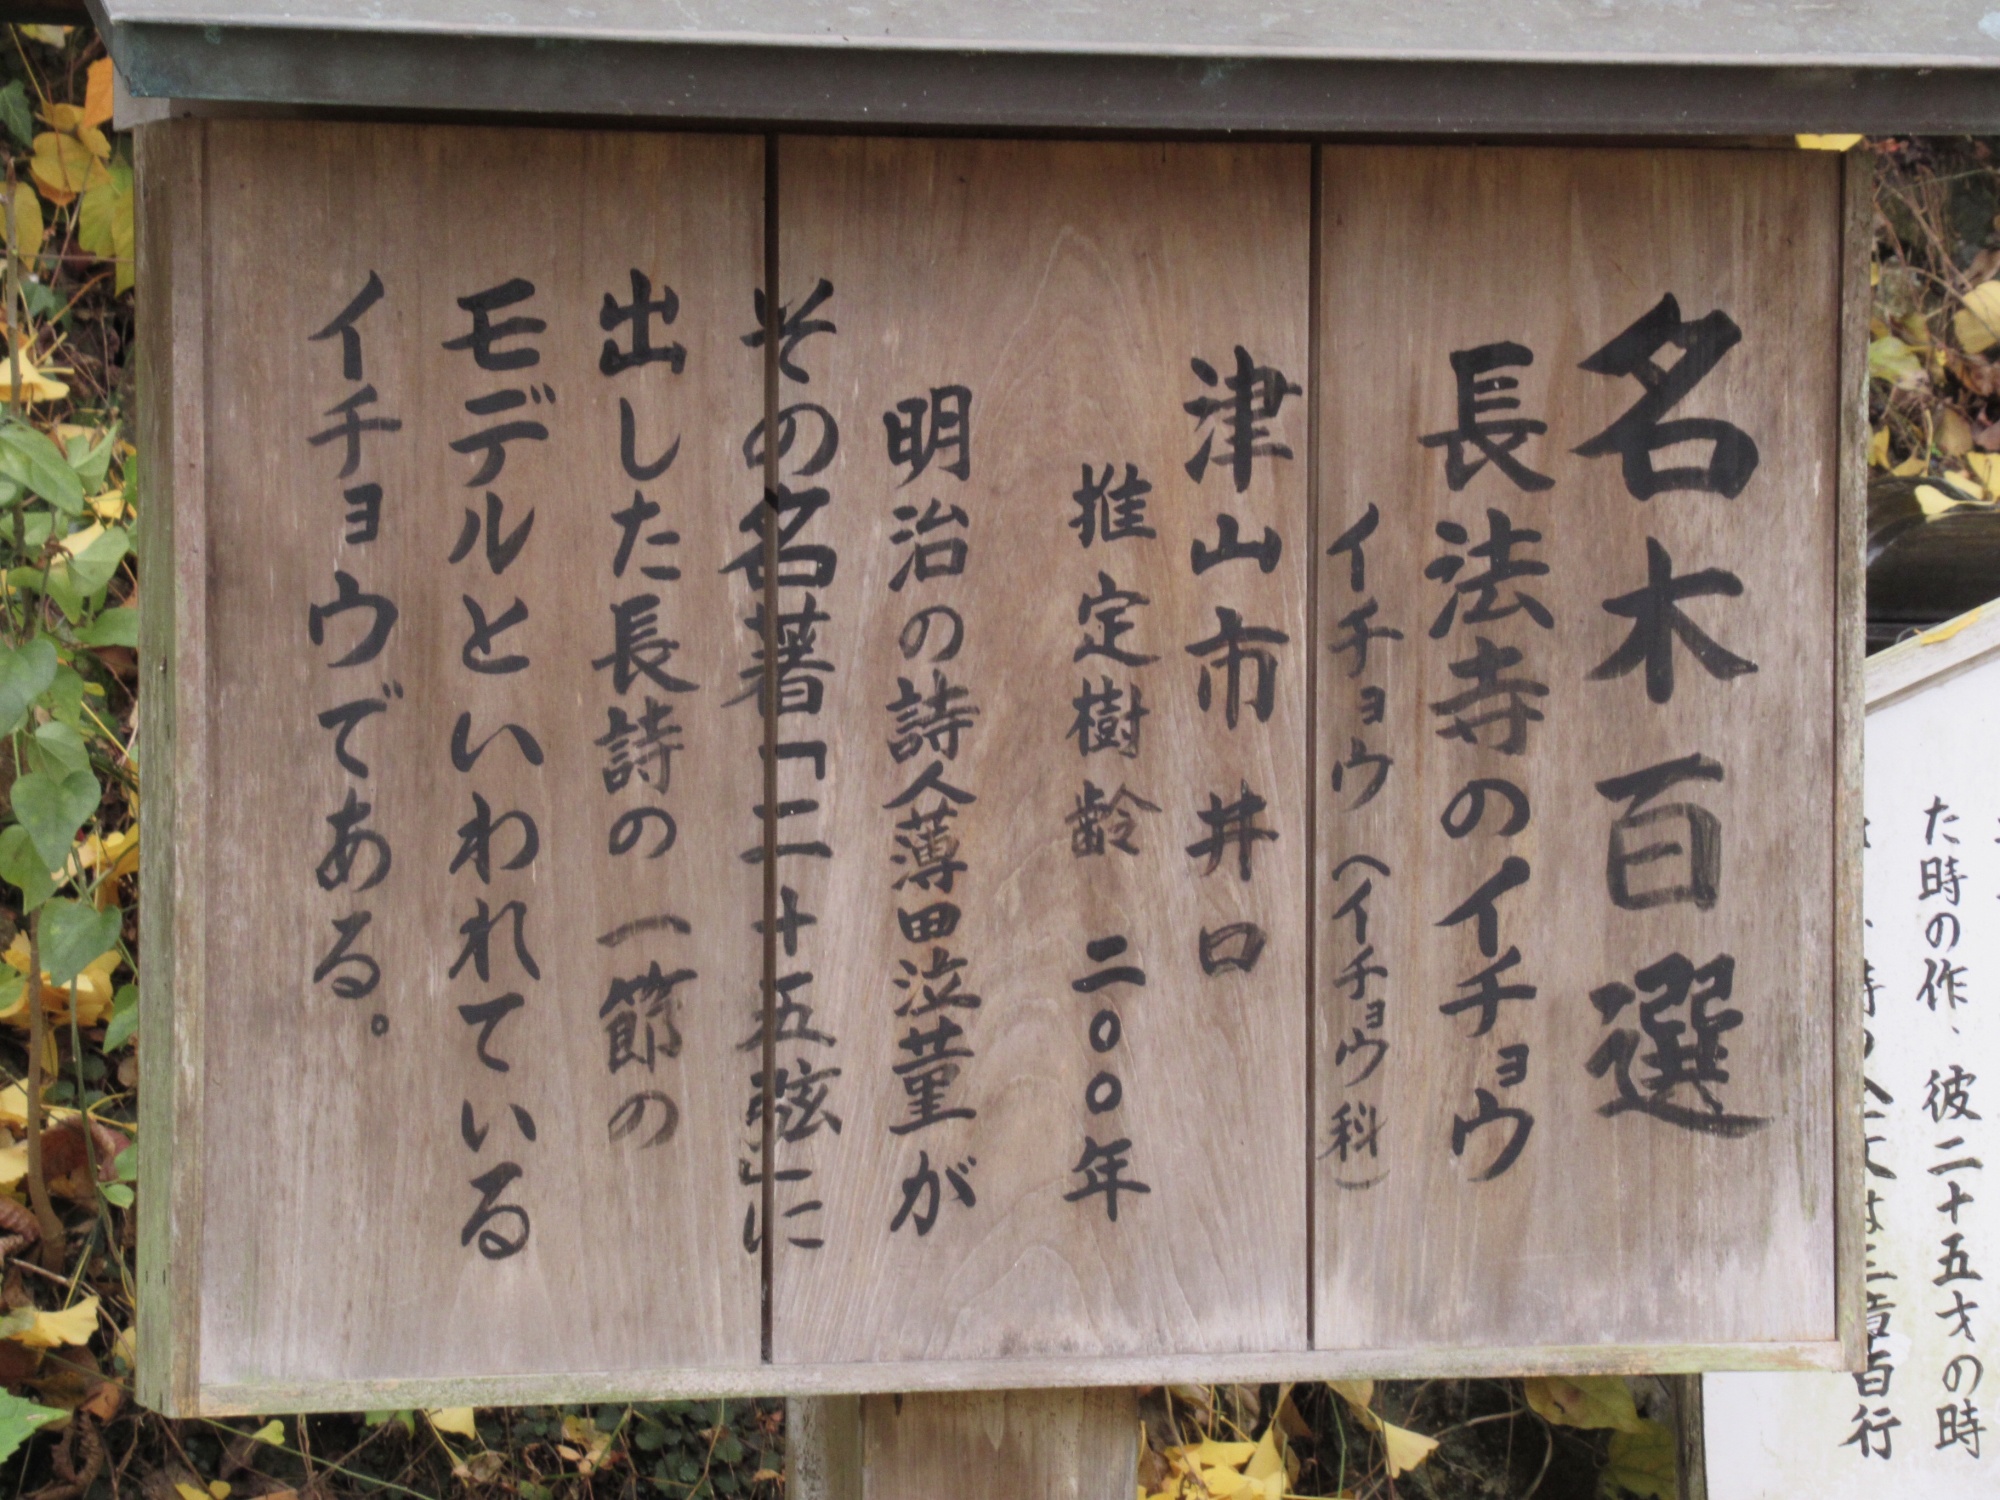 名木百選
長法寺のイチョウ
イチョウ(イチョウ科)
津山市井口
推定樹齢 二〇〇年
明治の詩人薄田泣菫が
その名著「二十五弦」に
出した長詩の一節の
モデルといわれている
イチョウである。
た時の作、彼二十五才の時